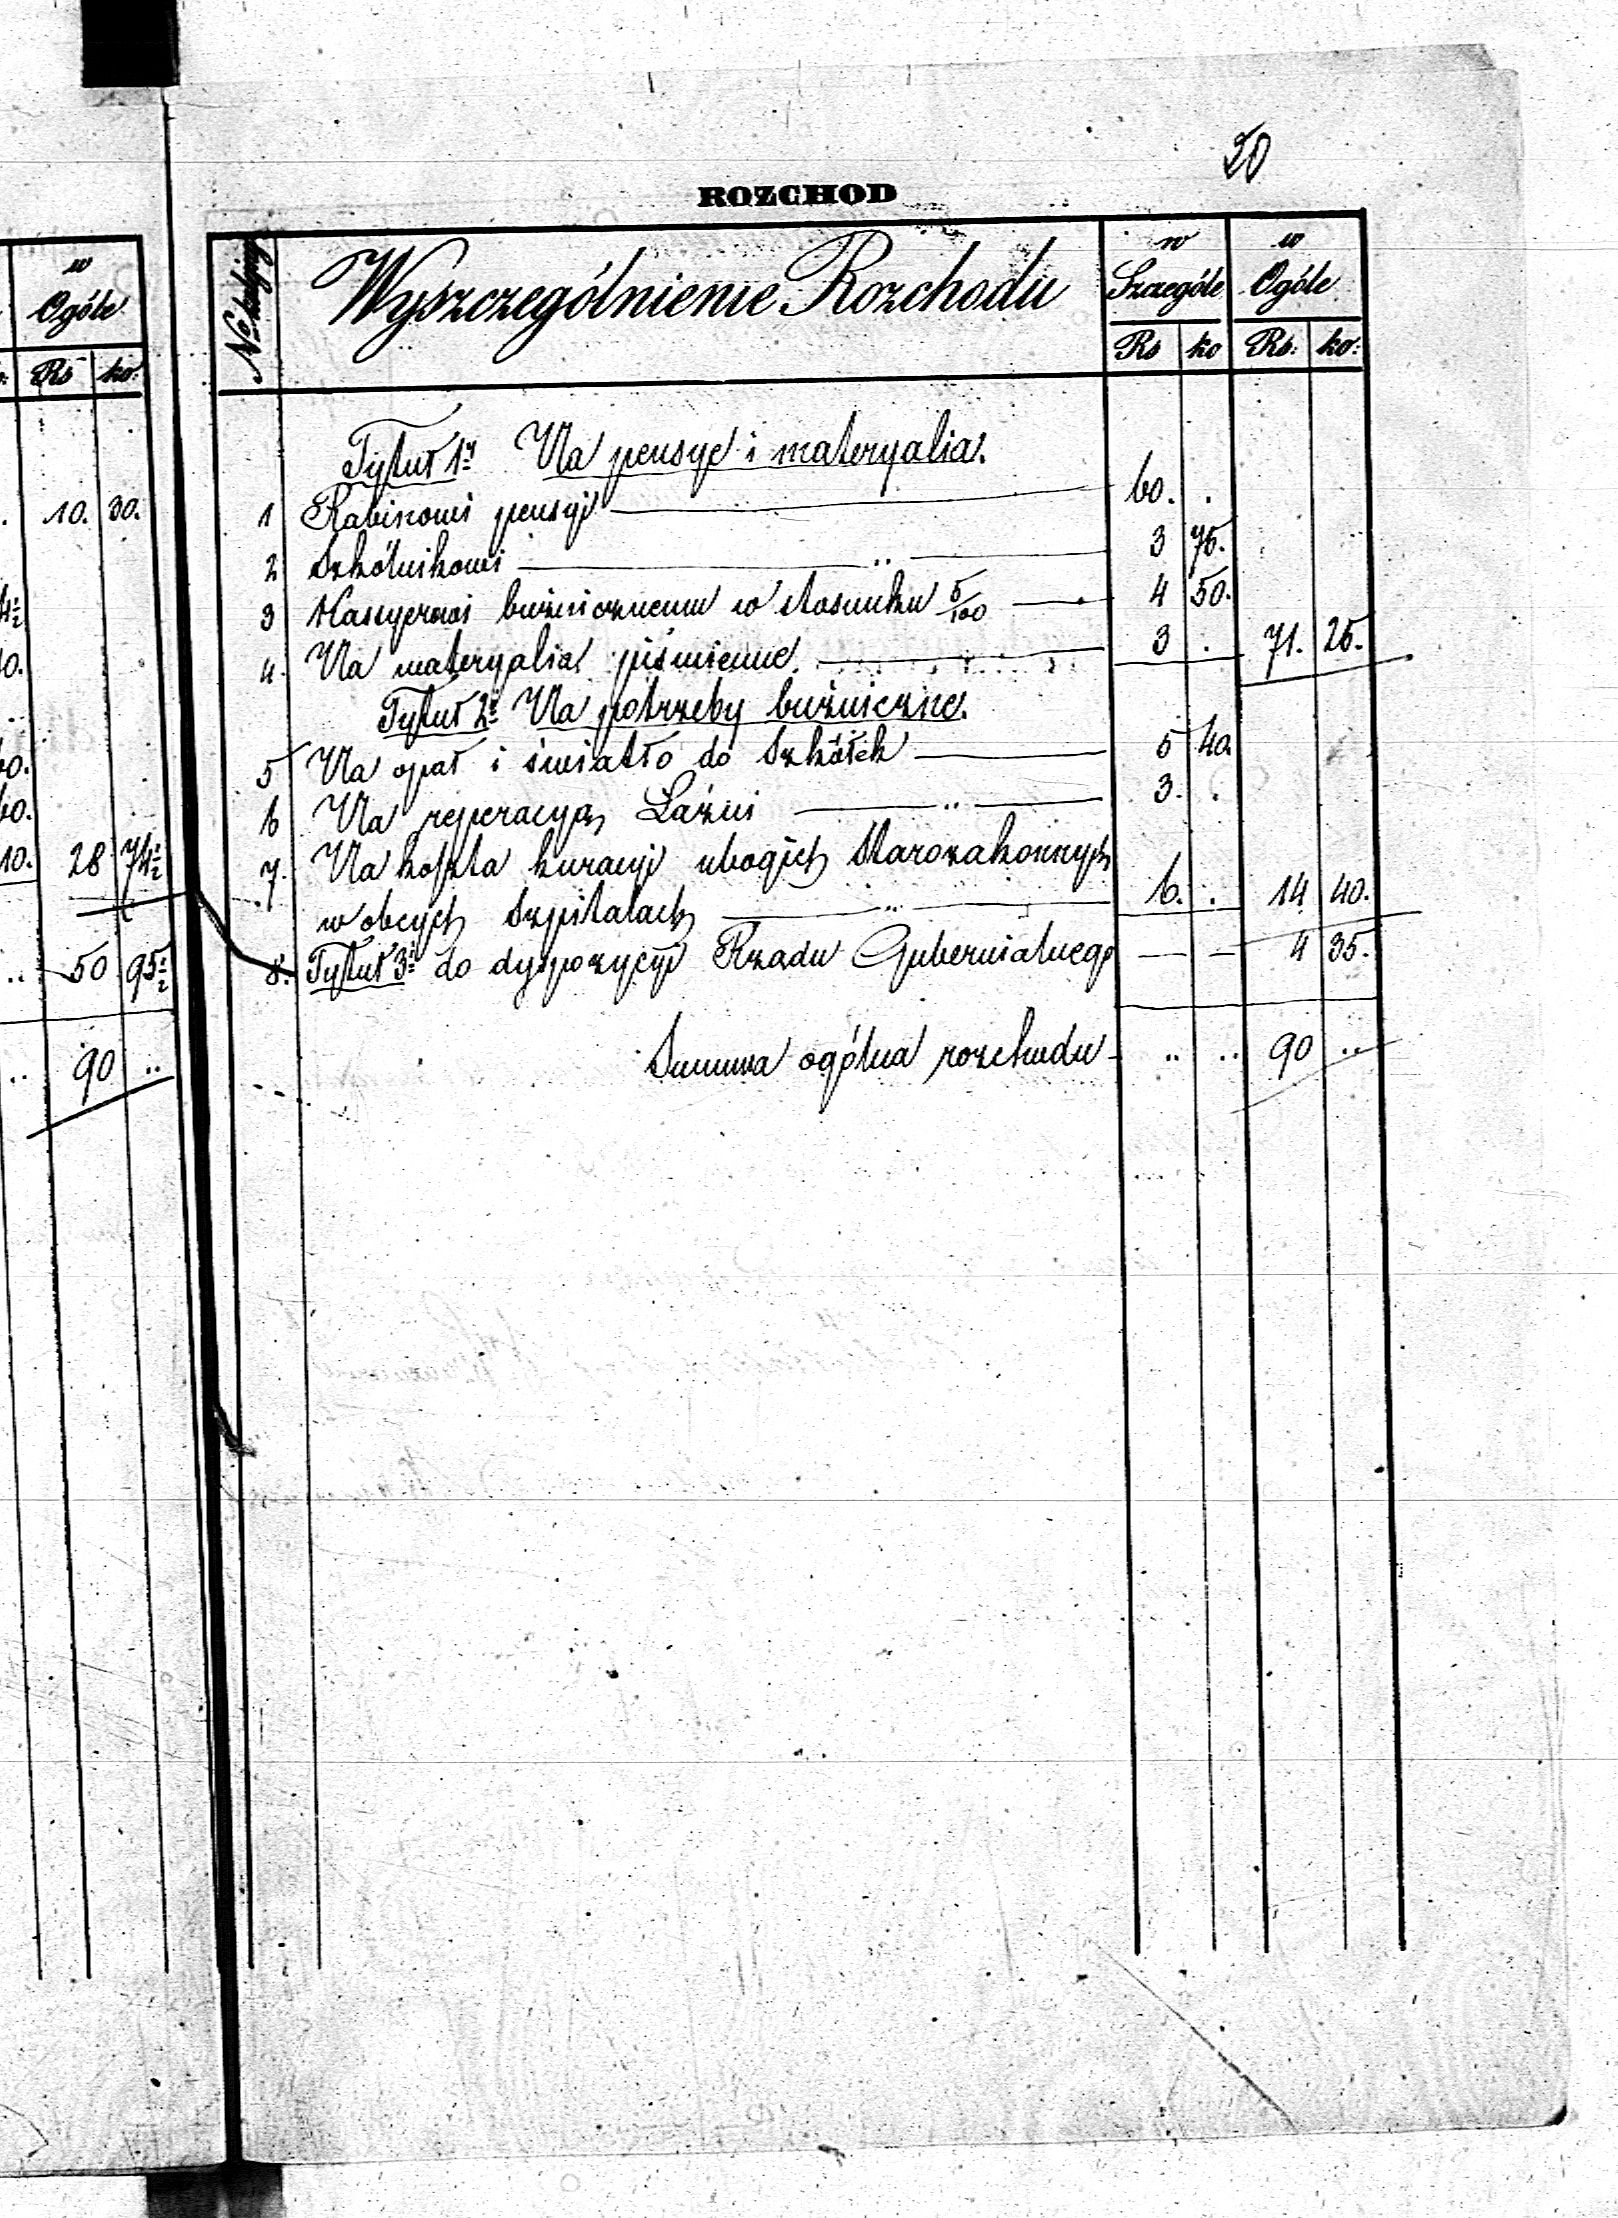 20
ROZCHOD
w Ogóle
Rs ko:
10. 30.
10. 28 74½
50 95½
90 ..
No kolejny Wyszczególnienie Rozchodu w Szczególe w Ogóle
Rs ko Rs: ko:
Tytuł 1y Na pensye i materyalia.
1 Rabinowi pensyi 60. .
2 Szkólnikowi „ 3 75.
3 Kassyerowi bużnicznemu w stosunku 5/100 4 50.
4. Na materyalia piśmienne. 3 . 71. 25.
Tytuł 2i Na potrzeby bużniczne.
5 Na opał i światło do Szkółek 5 40.
6 Na reperacyą Łaźni „ 3. .
7. Na koszta kuracyi ubogich Starozakonnych
w obcych Szpitalach „ 6. . 14 40.
8. Tytuł 3i do dyspozycyi Rządu Gubernialnego — — 4 35.
Summa ogólna rozchodu .. .. 90 ..